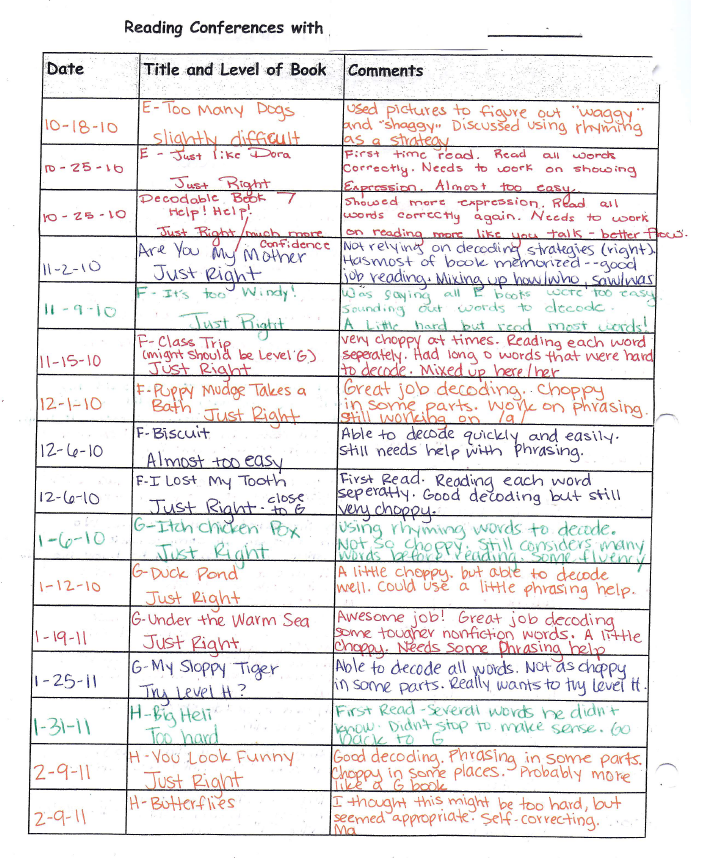 Reading Conferences with
Date
Title and Level of Book
Comments
10-18-10
E-Too Many Dogs
slightly difficult
used pictures to figure out "waggy"
and "shaggy". Discussed using rhyming
as a strategy
10-25-10
E - Just like Dora
Just Right
First time read. Read all words
correctly. Needs to work on showing
Expression. Almost too easy.
10-25-10
Decodable Book 7
Help! Help!
Just Right/much more
confidence
Showed more expression. Read all
words correctly again. Needs to work
on reading more like you talk - better flow.
11-2-10
Are You My Mother
Just Right
Not relying on decoding strategies (right).
Has most of book memorized--good
job reading. Mixing up how/who, saw/was
11-9-10
F- It's too Windy!
Just Right
Was saying all E books were too easy
Sounding out words to decode.
A Little hard but read most words!
11-15-10
F- Class Trip
(might should be Level G)
Just Right
very choppy at times. Reading each word
seperately. Had long o words that were hard
to decode. Mixed up here/her
12-1-10
F-Puppy Mudge Takes a
Bath Just Right
Great job decoding. Choppy
in some parts. Work on phrasing.
still working on /g/
12-6-10
F-Biscuit
Almost too easy
Able to decode quickly and easily.
still needs help with phrasing.
12-6-10
F-I Lost My Tooth
Just Right - close
to G
First Read. Reading each word
seperatly. Good decoding but still
very choppy.
1-6-10
G-Itch chicken Pox
Just Right
using rhyming words to decode.
Not so choppy. Still considers many
words before reading. Some fluency
1-12-10
G-Duck Pond
Just Right
A little choppy. but able to decode
well. Could use a little phrasing help.
1-19-11
G-Under the Warm Sea
Just Right
Awesome job! Great job decoding
some tougher nonfiction words. A little
choppy. Needs some Phrasing help
1-25-11
G-My Sloppy Tiger
Try Level H?
Able to decode all words. Not as choppy
in some parts. Really wants to try level H.
1-31-11
H-Big Heli
Too hard
First Read-Severall words he didn't
know. Didn't stop to make sense. Go
back to G
2-9-11
H-You Look Funny
Just Right
Good decoding. Phrasing in some parts.
Choppy in some places. Probably more
like a G book
2-9-11
H-Butterflies
I thought this might be too hard, but
seemed appropriate. Self-correcting.
Ma